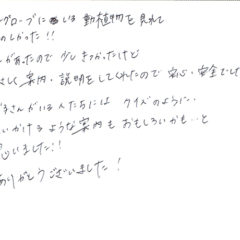 グローブにいる動植物を見れて
のしかった!!
があったので少しきつかったけど
しく案内・説明をしてくれたので安心・安全でした
さんがいる人たちには クイズのように‥
いかけるような案内もおもしろいかも…と
思いました!!
ありがとうございました!